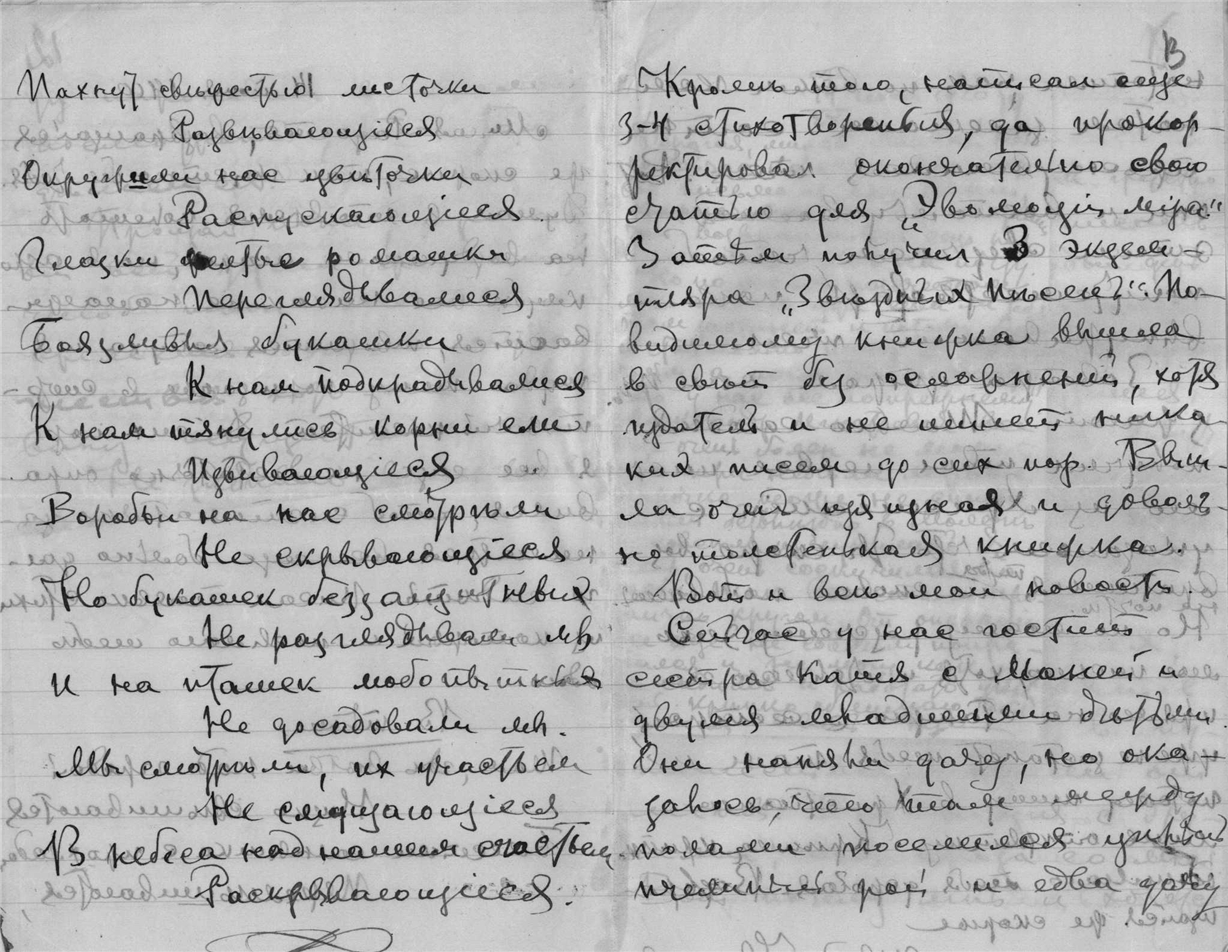 Пахнут свѣжестью листочки
Развѣвающiеся
Окружили нас цвѣточки
Распускающiеся.
Глазки желтые ромашки
Переглядывалися
Боязливыя букашки
К нам подкрадывалися
К нам тянулись корни ели
Извивающiеся
Воробьи на нас смотрѣли
Не скрывающiеся.
Но букашек беззащитных
Не разглядывали мы
И на пташек любопытных
Не досадовали мы.
Мы смотрѣли, их участьем
Не смущающiеся
В небеса над нашим счастьем
Раскрывающiеся.
13
Кромѣ того, написал еще
3-4 стихотворенья, да прокор-
ректировал окончательно свою
статью для „Эволюцiи мiра"
Затѣм получил 3 экзем-
пляра „Звѣздных Пѣсен". По-
видимому книжка вышла
в свѣт без осложненiй, хотя
издатель и не пишет ника
ких писем до сих пор. Выш-
ла очень изящная и доволь-
но толстенькая книжка.
Вот и всѣ мои новости.
Сейчас у нас гостит
сестра Катя с Маней и
двумя младшими дѣтьми.
Они наняли дачу, но ока-
залось, что там между
полами поселился цѣлый
пчелиный рой и едва дачу